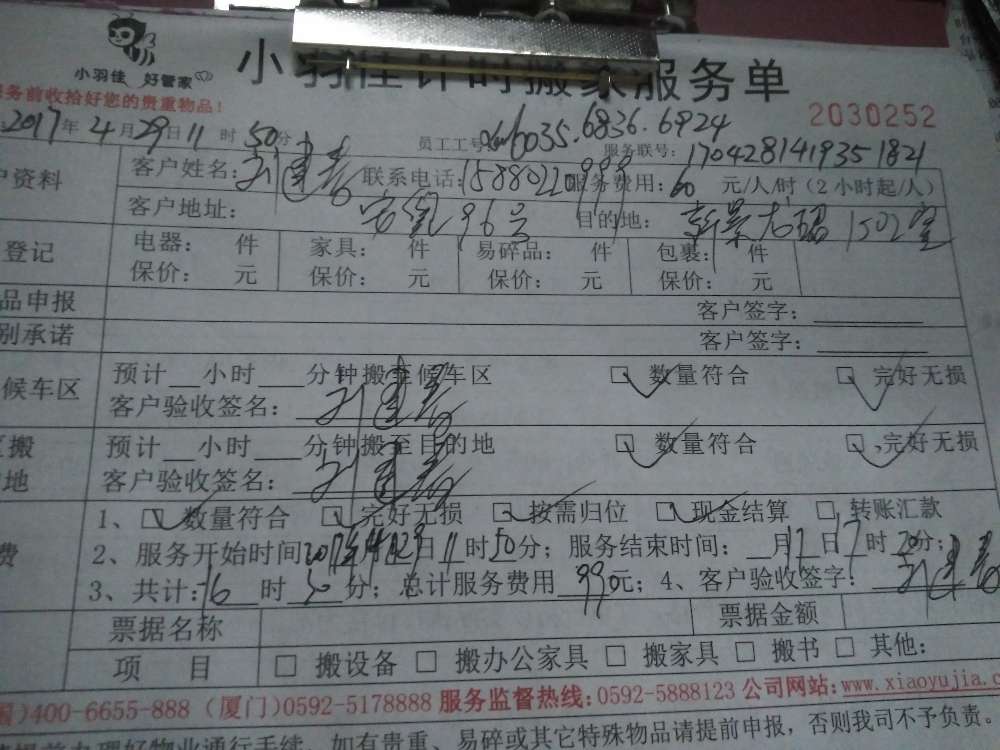 小羽佳 好管家
小羽佳计时搬家服务单
服务前收拾好您的贵重物品！
2030252
2017年4月29日11时50分 员工工号 6035.6836.6924
服务联号：1704281419351821
户资料 客户姓名： 联系电话：15880220999 服务费用：60元/人/时（2小时起/人）
客户地址： 96号 目的地：新景 1502室
登记 电器： 件 家具： 件 易碎品： 件 包裹： 件
保价： 元 保价： 元 保价： 元 保价： 元
品申报 客户签字：
别承诺 客户签字：
候车区 预计 小时 分钟搬至候车区 数量符合 完好无损
客户验收签名：
搬 预计 小时 分钟搬至目的地 数量符合 完好无损
地 客户验收签名：
1、 数量符合 完好无损 按需归位 现金结算 转账汇款
费 2、服务开始时间2017年4月29日11时50分；服务结束时间： 月 日17时20分；
3、共计：16时30分；总计服务费用990元；4、客户验收签字：
票据名称 票据金额
项 目 搬设备 搬办公家具 搬家具 搬书 其他：
国)400-6655-888（厦门)0592-5178888 服务监督热线：0592-5888123 公司网站：www.xiaoyujia.c
提前办理好物业通行手续，如有贵重、易碎或其它特殊物品请提前申报，否则我司不予负责。